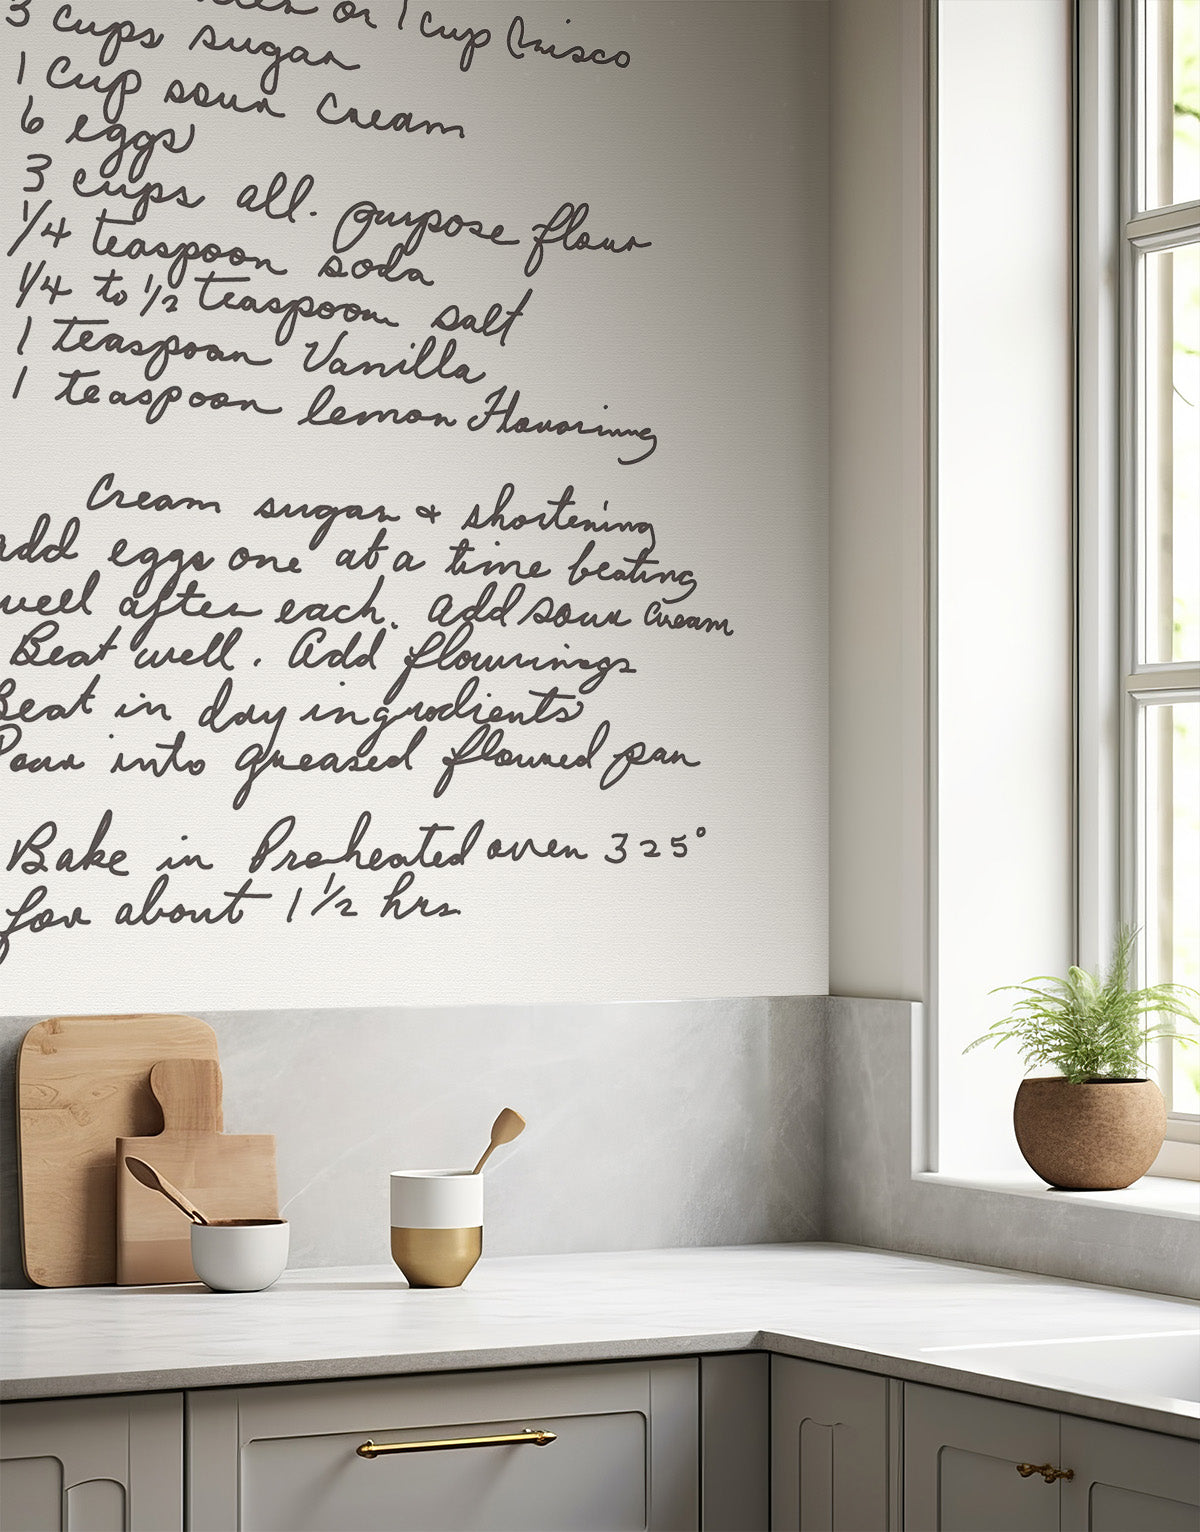 or 1 cup Crisco
3 cups sugar
1 cup sour cream
6 eggs
3 cups all. purpose flour
1/4 teaspoon soda
1/4 to 1/2 teaspoon salt
1 teaspoon Vanilla
1 teaspoon lemon Flavoring
Cream sugar & shortening
add eggs one at a time beating
well after each. Add sour cream
Beat well. Add flavorings
Beat in dry ingredients
Pour into greased floured pan
Bake in Preheated oven 325°
for about 1 1/2 hrs.